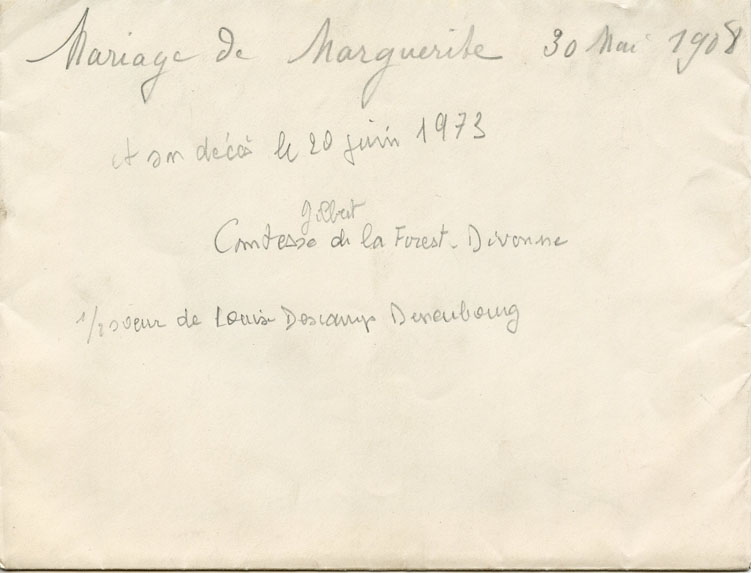 Mariage de Marguerite 30 Mai 1908
et son décès le 20 juin 1973
Gilbert
Comtesse de la Forest-Divonne
1/2 soeur de Louis Descamps